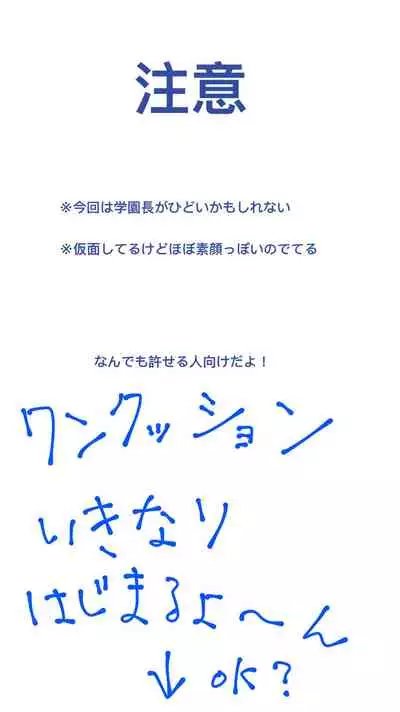 注意
※今回は学園長がひどいかもしれない
※仮面してるけどほぼ素顔っぽいのでてる
なんでも許せる人向けだよ！
ワンクッション
いきなり
はじまるよ〜ん
↓OK?